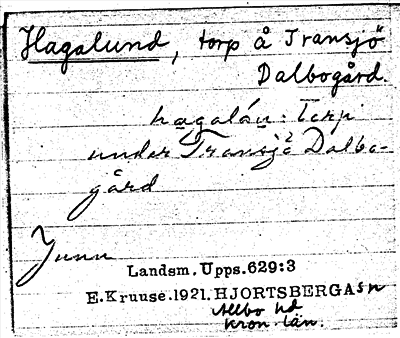 Hagalund, torp å Transjö
Dalbogård.
hagalán: Torp
under Transjö Dalbo-
gård
Landsm. Upps. 629:3
E.Kruuse.1921. HJORTSBERGA sn
Allbo hd
Kron. län.